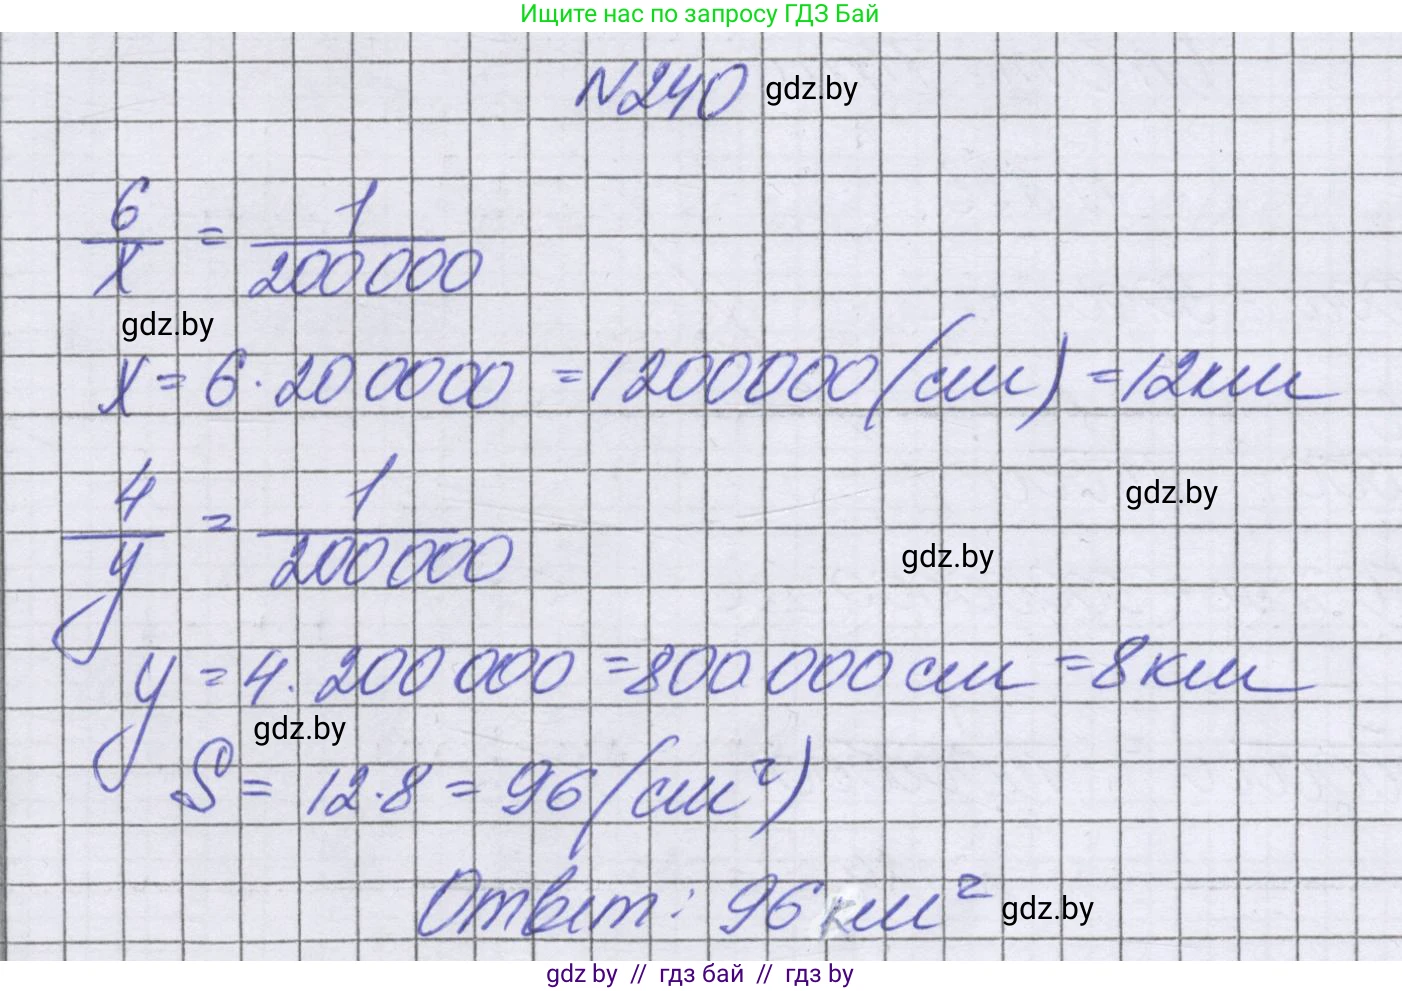 Ищите нас по запросу ГДЗ Бай
N240 gdz.by
6/x = 1/200 000
gdz.by
x = 6 · 200000 = 1200000 (см) = 12км
4/y = 1/200 000
gdz.by
gdz.by
y = 4 · 200 000 = 800 000 см = 8 км
gdz.by
S = 12 · 8 = 96 (см²)
Ответ: 96 км² gdz.by
gdz by // гдз бай // гдз by